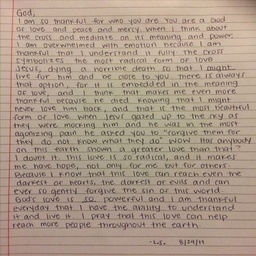 God,
I am so thankful for who you are. You are a God
of love and peace and mercy. When I think about
the cross and meditate on its meaning and power,
I am overwhelmed with emotion because I am
thankful that I understand it fully. The cross
symbolizes the most radical form of love
Jesus, dying a horrible death so that I might
live for him and be close to you. There is always
that option, for it is embedded in the meaning
of love, and I think that makes me even more
thankful because he died knowing that I might
never love him back, and that is the most beautiful
form of love. When Jesus gazed up to the sky as
they were mocking him and he was in the most
agonizing pain he asked you to "forgive them for
they do not know what they do" wow. Has anybody
on this earth shown a greater love than that?
I doubt it. This love is so radical, and it makes
me have hope, not only for me but for others.
Because I know that this love can reach even the
darkest of hearts, the darkest of evils and can
ever so gently forgive the sin of this world.
God's love is so powerful and I am thankful
everyday that I have the ability to understand
it and live it. I pray that this love can help
reach more people throughout the earth.
8/29/11